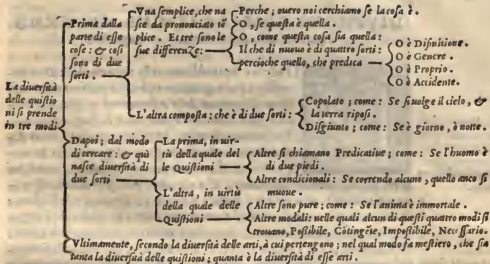 La diuersità
delle quistio
ni si prende
in tre modi
Prima dalla
parte di esse
cose: & così
sono di due
sorti.
Vna semplice, che na
sce da prononciato sē
plice. Et tre sono le
sue differenze:
Perche; ouero noi cerchiamo se la cosa è.
O, se questa è quella.
O, come questa cosa sia quella:
Il che di nuouo è di quattro sorti:
percioche quello, che predica
O è Difinitione.
O è Genere.
O è Proprio.
O è Accidente.
L'altra composta: che è di due sorti:
Copolato; come: Se si uolge il cielo, &
la terra riposi.
Disgiunto; come: Se è giorno, ò notte.
Dapoi; dal modo
di cercare: & quì
nasce diuersità di
due sorti
La prima, in uir-
tù della quale del
le Quistioni
Altre si chiamano Predicatiue; come: Se l'huomo è
di due piedi.
Altre condicionali: Se correndo alcuno, quello anco si
muoue.
L'altra, in uirtù
della quale delle
Quistioni
Altre sono pure: come: Se l'anima è immortale.
Altre modali: nelle quali alcun di questi quattro modi si
trouano, Possibile, Cōtingēte, Impossibile, Necessario.
Vltimamente, secondo la diuersità delle arti, à cui pertengono; nel qual modo fa mestiero, che sia
tanta la diuersità delle quistioni; quanta è la diuersità di esse arti.